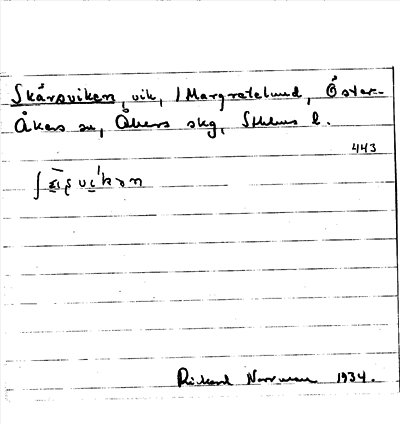 Skårsviken, vik, / Margretelund, Öster-
Åkers sn, Åkers skg, Sthlms l.
443
Rikard Norrman 1934.